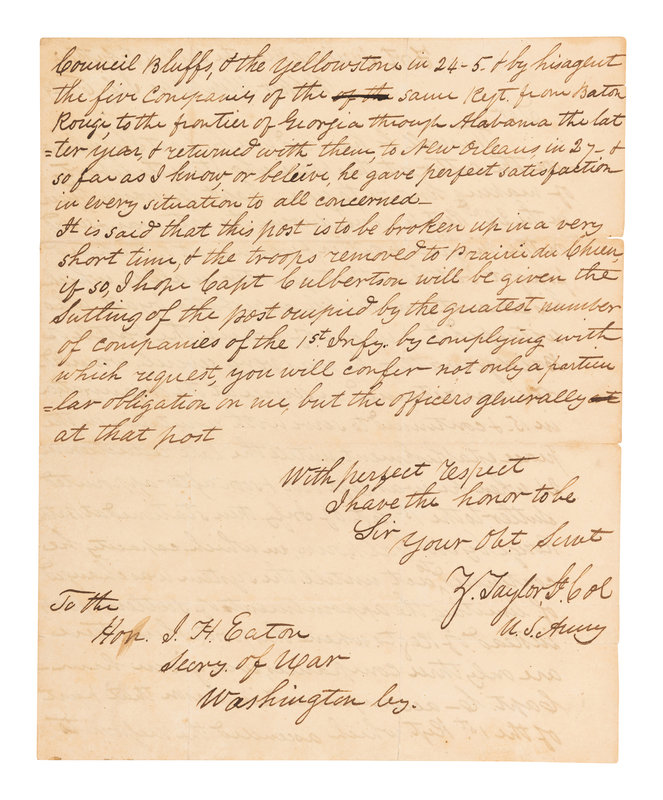 Council Bluffs, & the Yellowstone in 24-5. & by his agent
the five Companies of the of th same Regt. from Baton
Rouge, to the frontier of Georgia through Alabama the lat
=ter year, & returned with them, to New Orleans in 27 - &
so far as I know, or beleive, he gave perfect satisfaction
in every situation to all concerned —
It is said that this post is to be broken up in a very
short time, & the troops removed to Prairie du Chien
if so, I hope Capt Culbertson will be given the
Sutling of the post ocupied by the greatest number
of companies of the 1st Infy. by complying with
which request, you will confer not only a particu
=lar obligation on me, but the officers generally at
at that post
With perfect respect
I have the honor to be
Sir
Your Obt. Servt
Z. Taylor Lt. Col
U.S. Army
To the
Hon. J. H. Eaton
Secry. of War
Washington Cy.